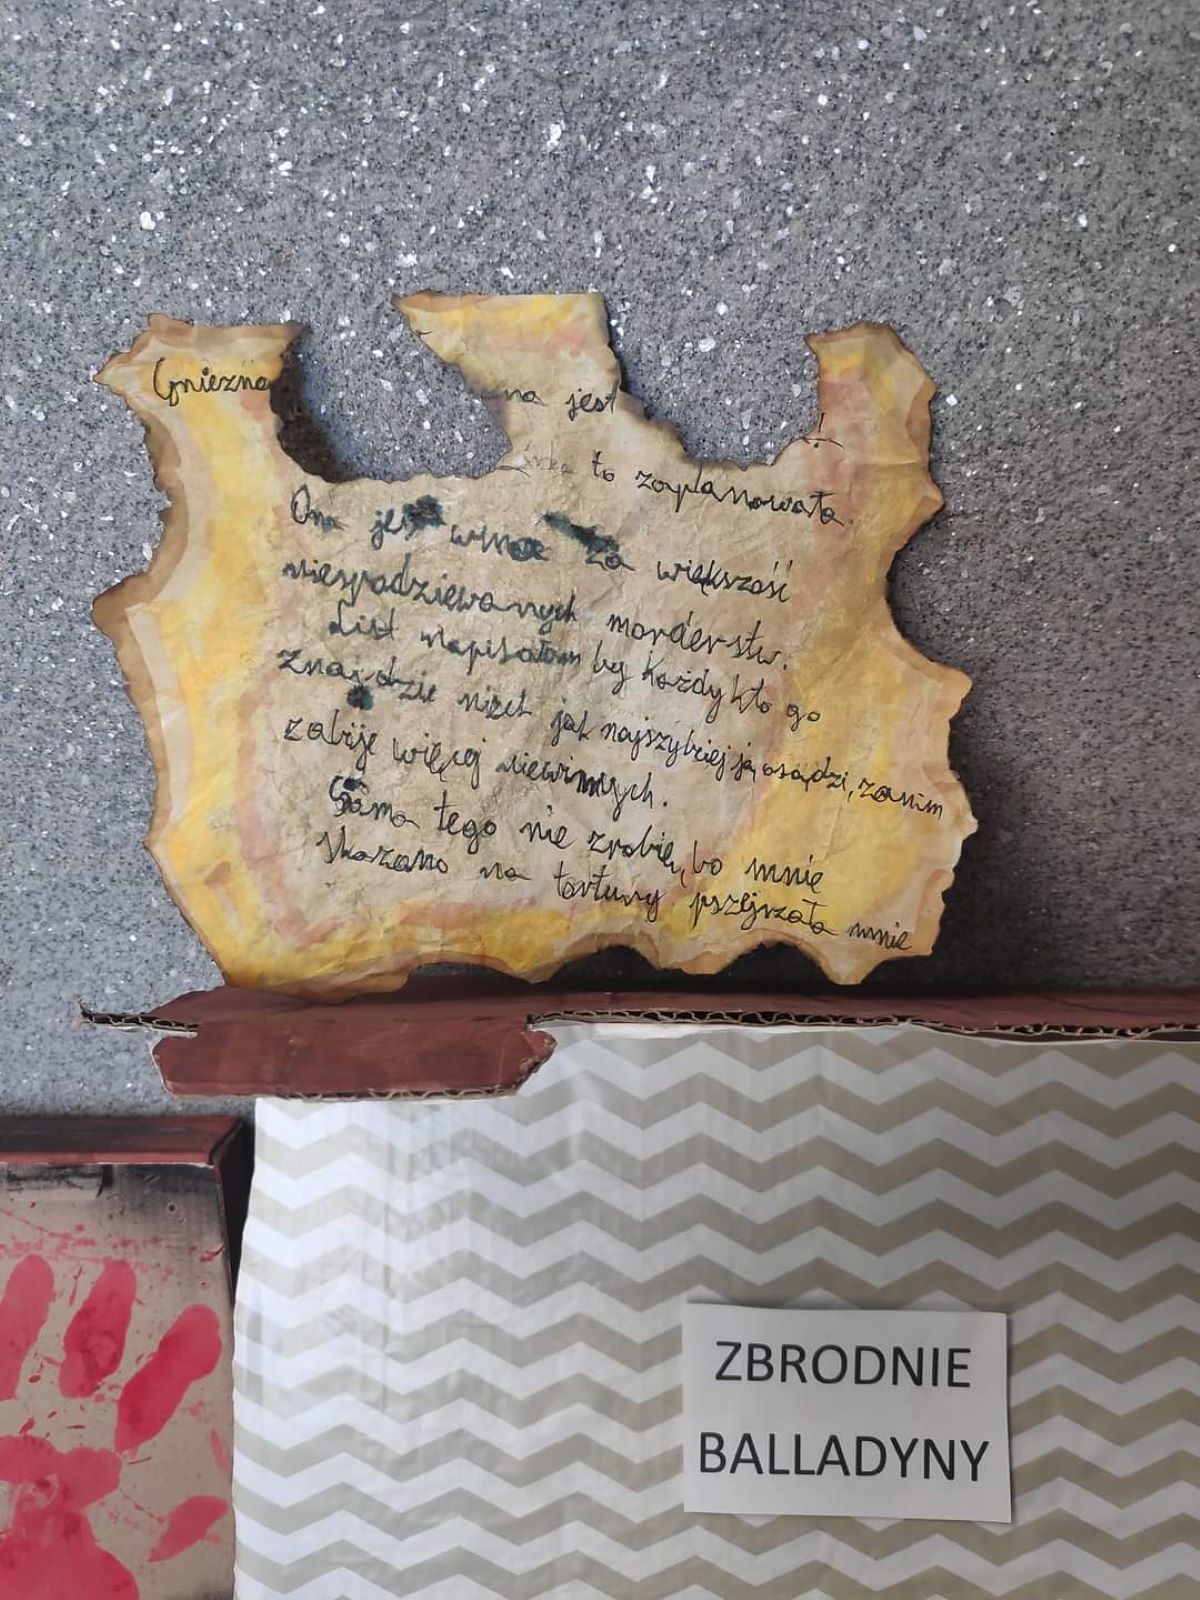 Gniezno
na jest
to zaplanowała.
Ona jest winna za większość
niespodziewanych morderstw.
List napisałam by każdy kto go
znajdzie niech jak najszybciej ją osądzi, zanim
zabije więcej niewinnych.
Sama tego nie zrobię, bo mnie
skazano na tortury pszejrzała mnie
ZBRODNIE
BALLADYNY